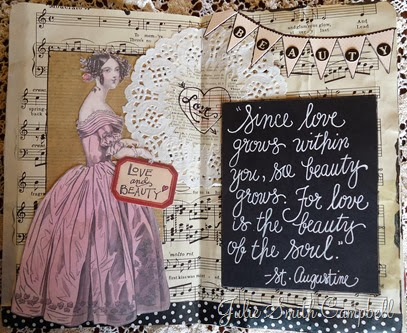 BEAUTY
Love
LOVE
and
BEAUTY
Since love
grows within
you, so beauty
grows. For love
is the beauty
of the soul."
-St. Augustine
Julie Smith Campbell